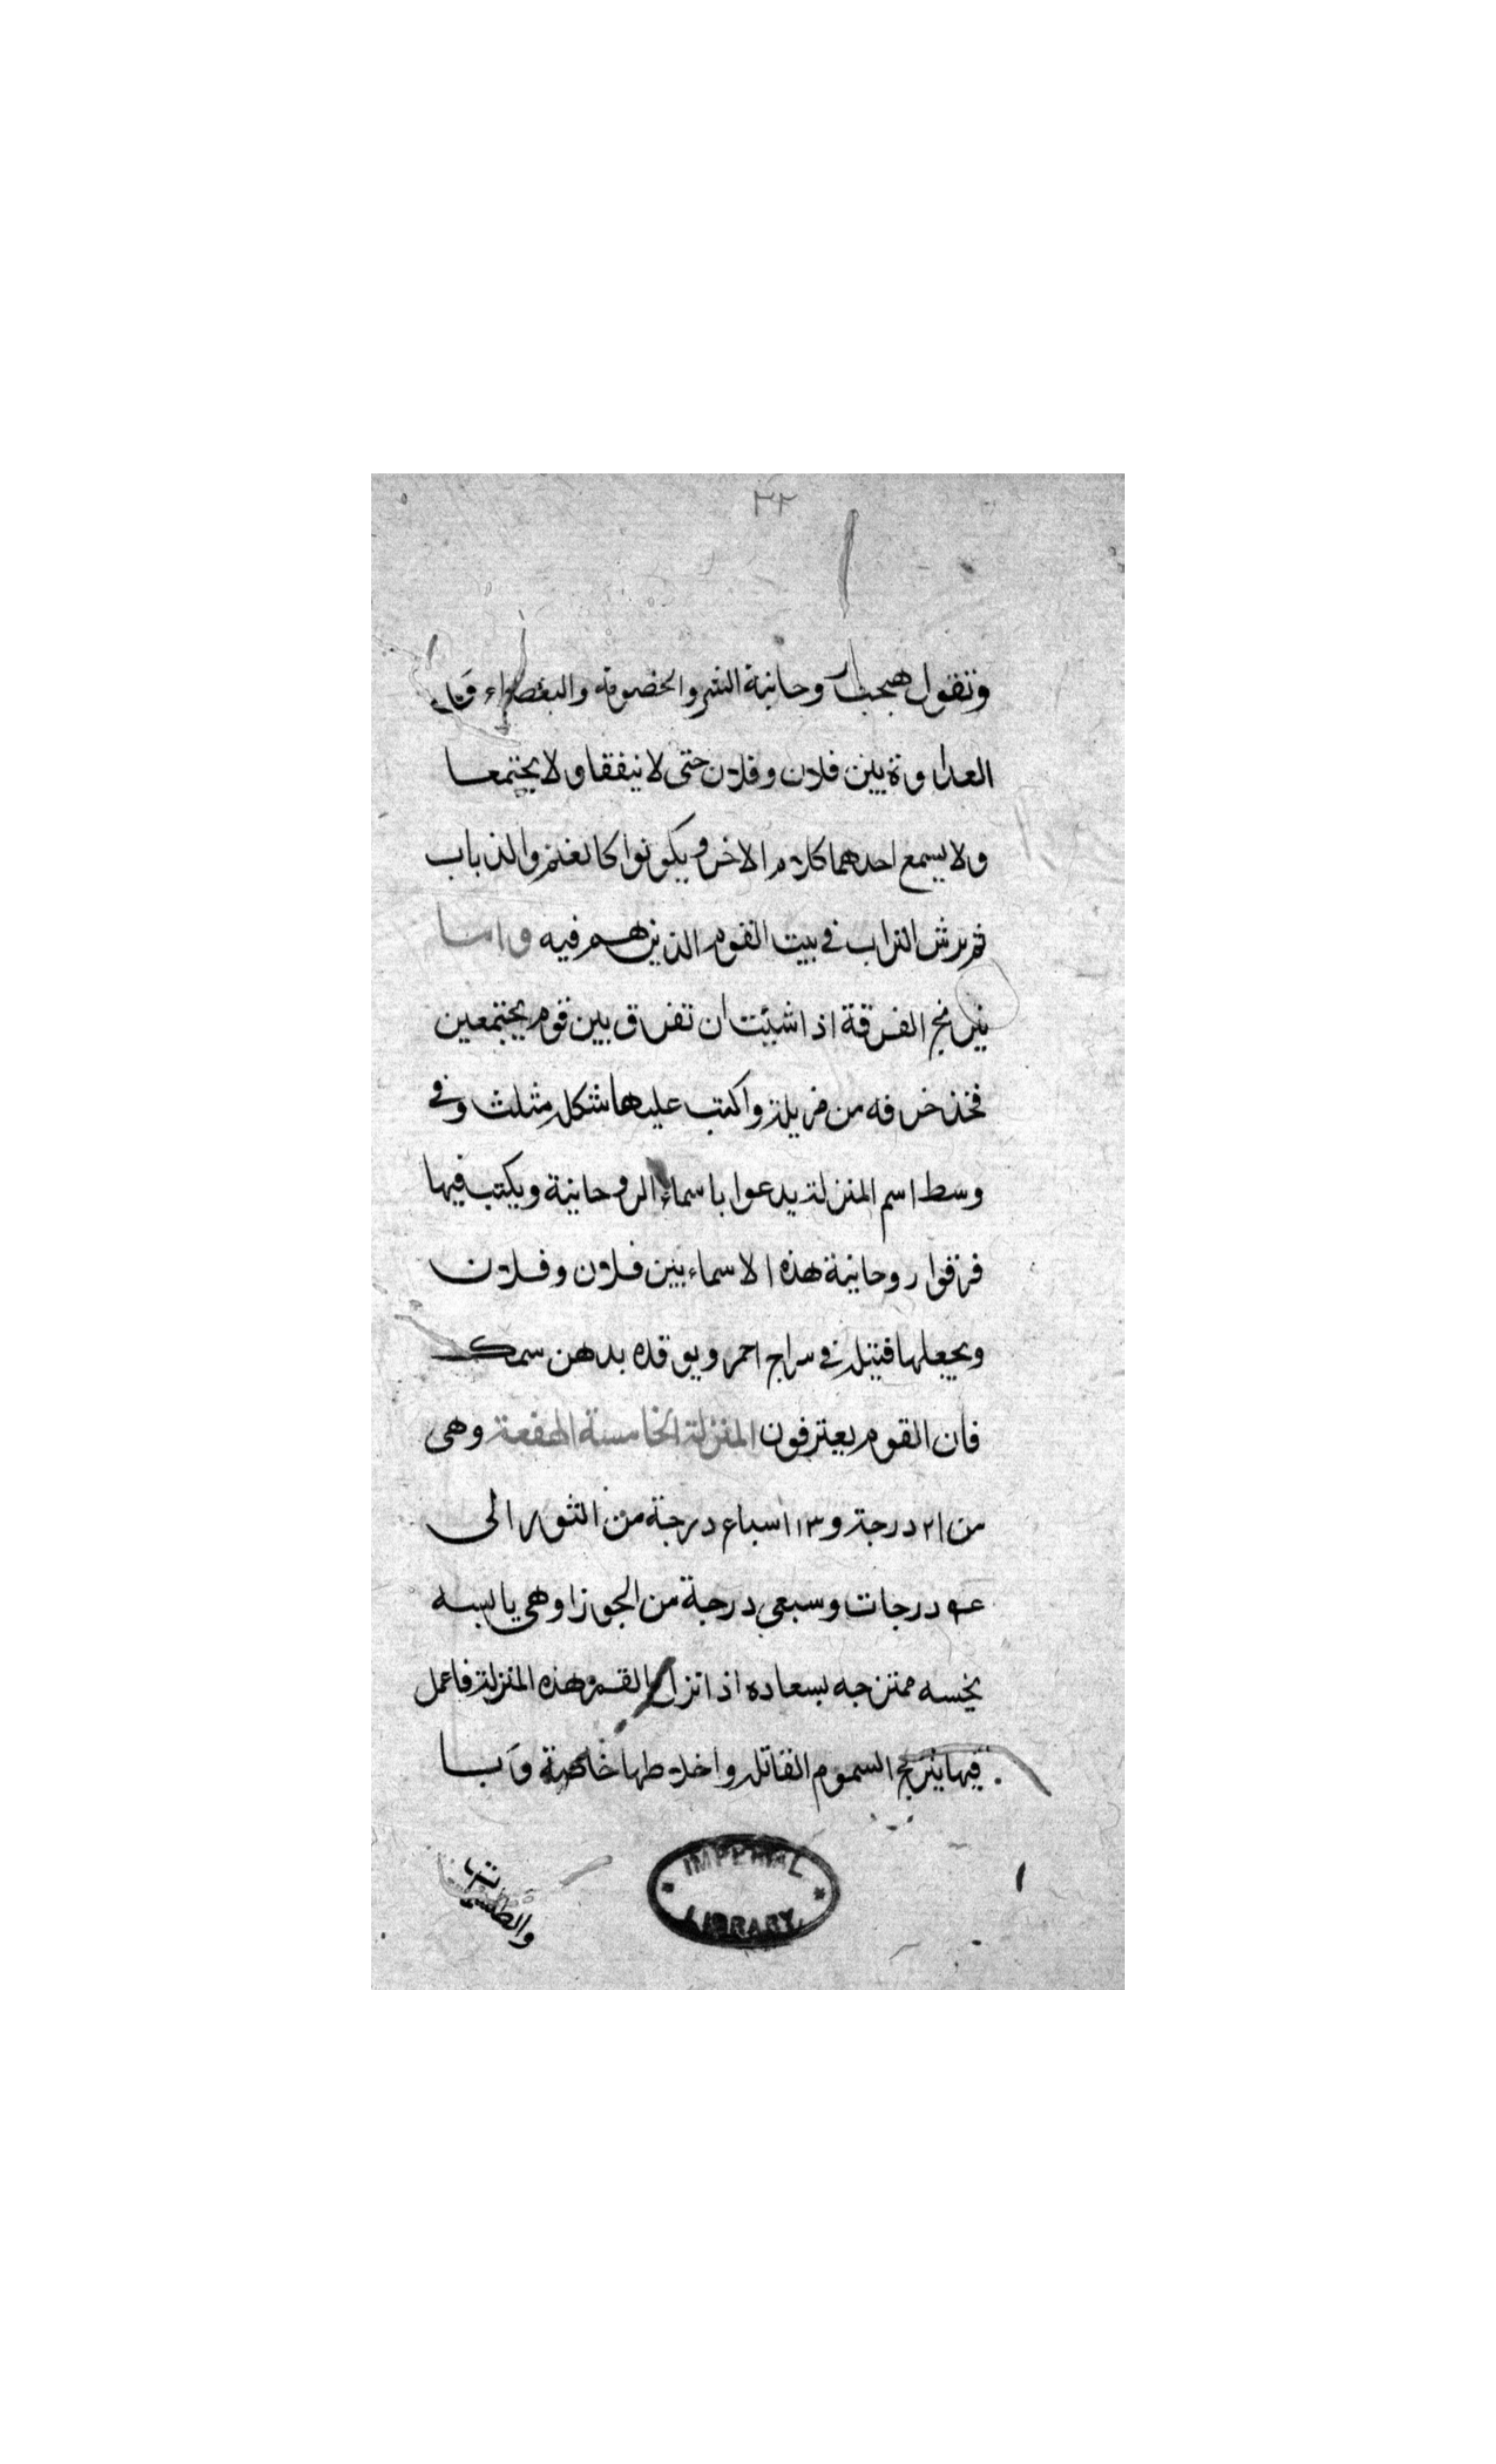 ٣٢
وتقول هيجت روحانية الشر والخصومة والبغضاء
العداوة بين فلان وفلان حتى لا يتفقا ولا يجتمعا
ولا يسمع احدهما كلام الاخر ويكونوا كالغنم والذياب
ثم يرش التراب في بيت القوم الذين هم فيه واما
نيرنج الفرقة اذا شئت ان تفرق بين قوم يجتمعين
فخذ خرفه من مزبلة واكتب عليها شكل مثلث وفي
وسط اسم المنزلة يدعوا باسماء الروحانية ويكتب فيها
فرقوا روحانية هذه الاسماء بين فلان وفلان
ويجعلها فتيلة في سراج احمر ويوقده بدهن سمك
فان القوم يعترفون المنزلة الخامسة الهقعة وهي
من ٢١ درجة و٣ اسباع درجة من الثور الى
درجات وسبعي درجة من الجوزا وهي يابسه
نحسه ممتزجه بسعاده اذا نزل القمر هذه المنزلة فاعمل
فيها نيرنج السموم القاتلة واخلاطها خاصة
IMPERIAL
LIBRARY